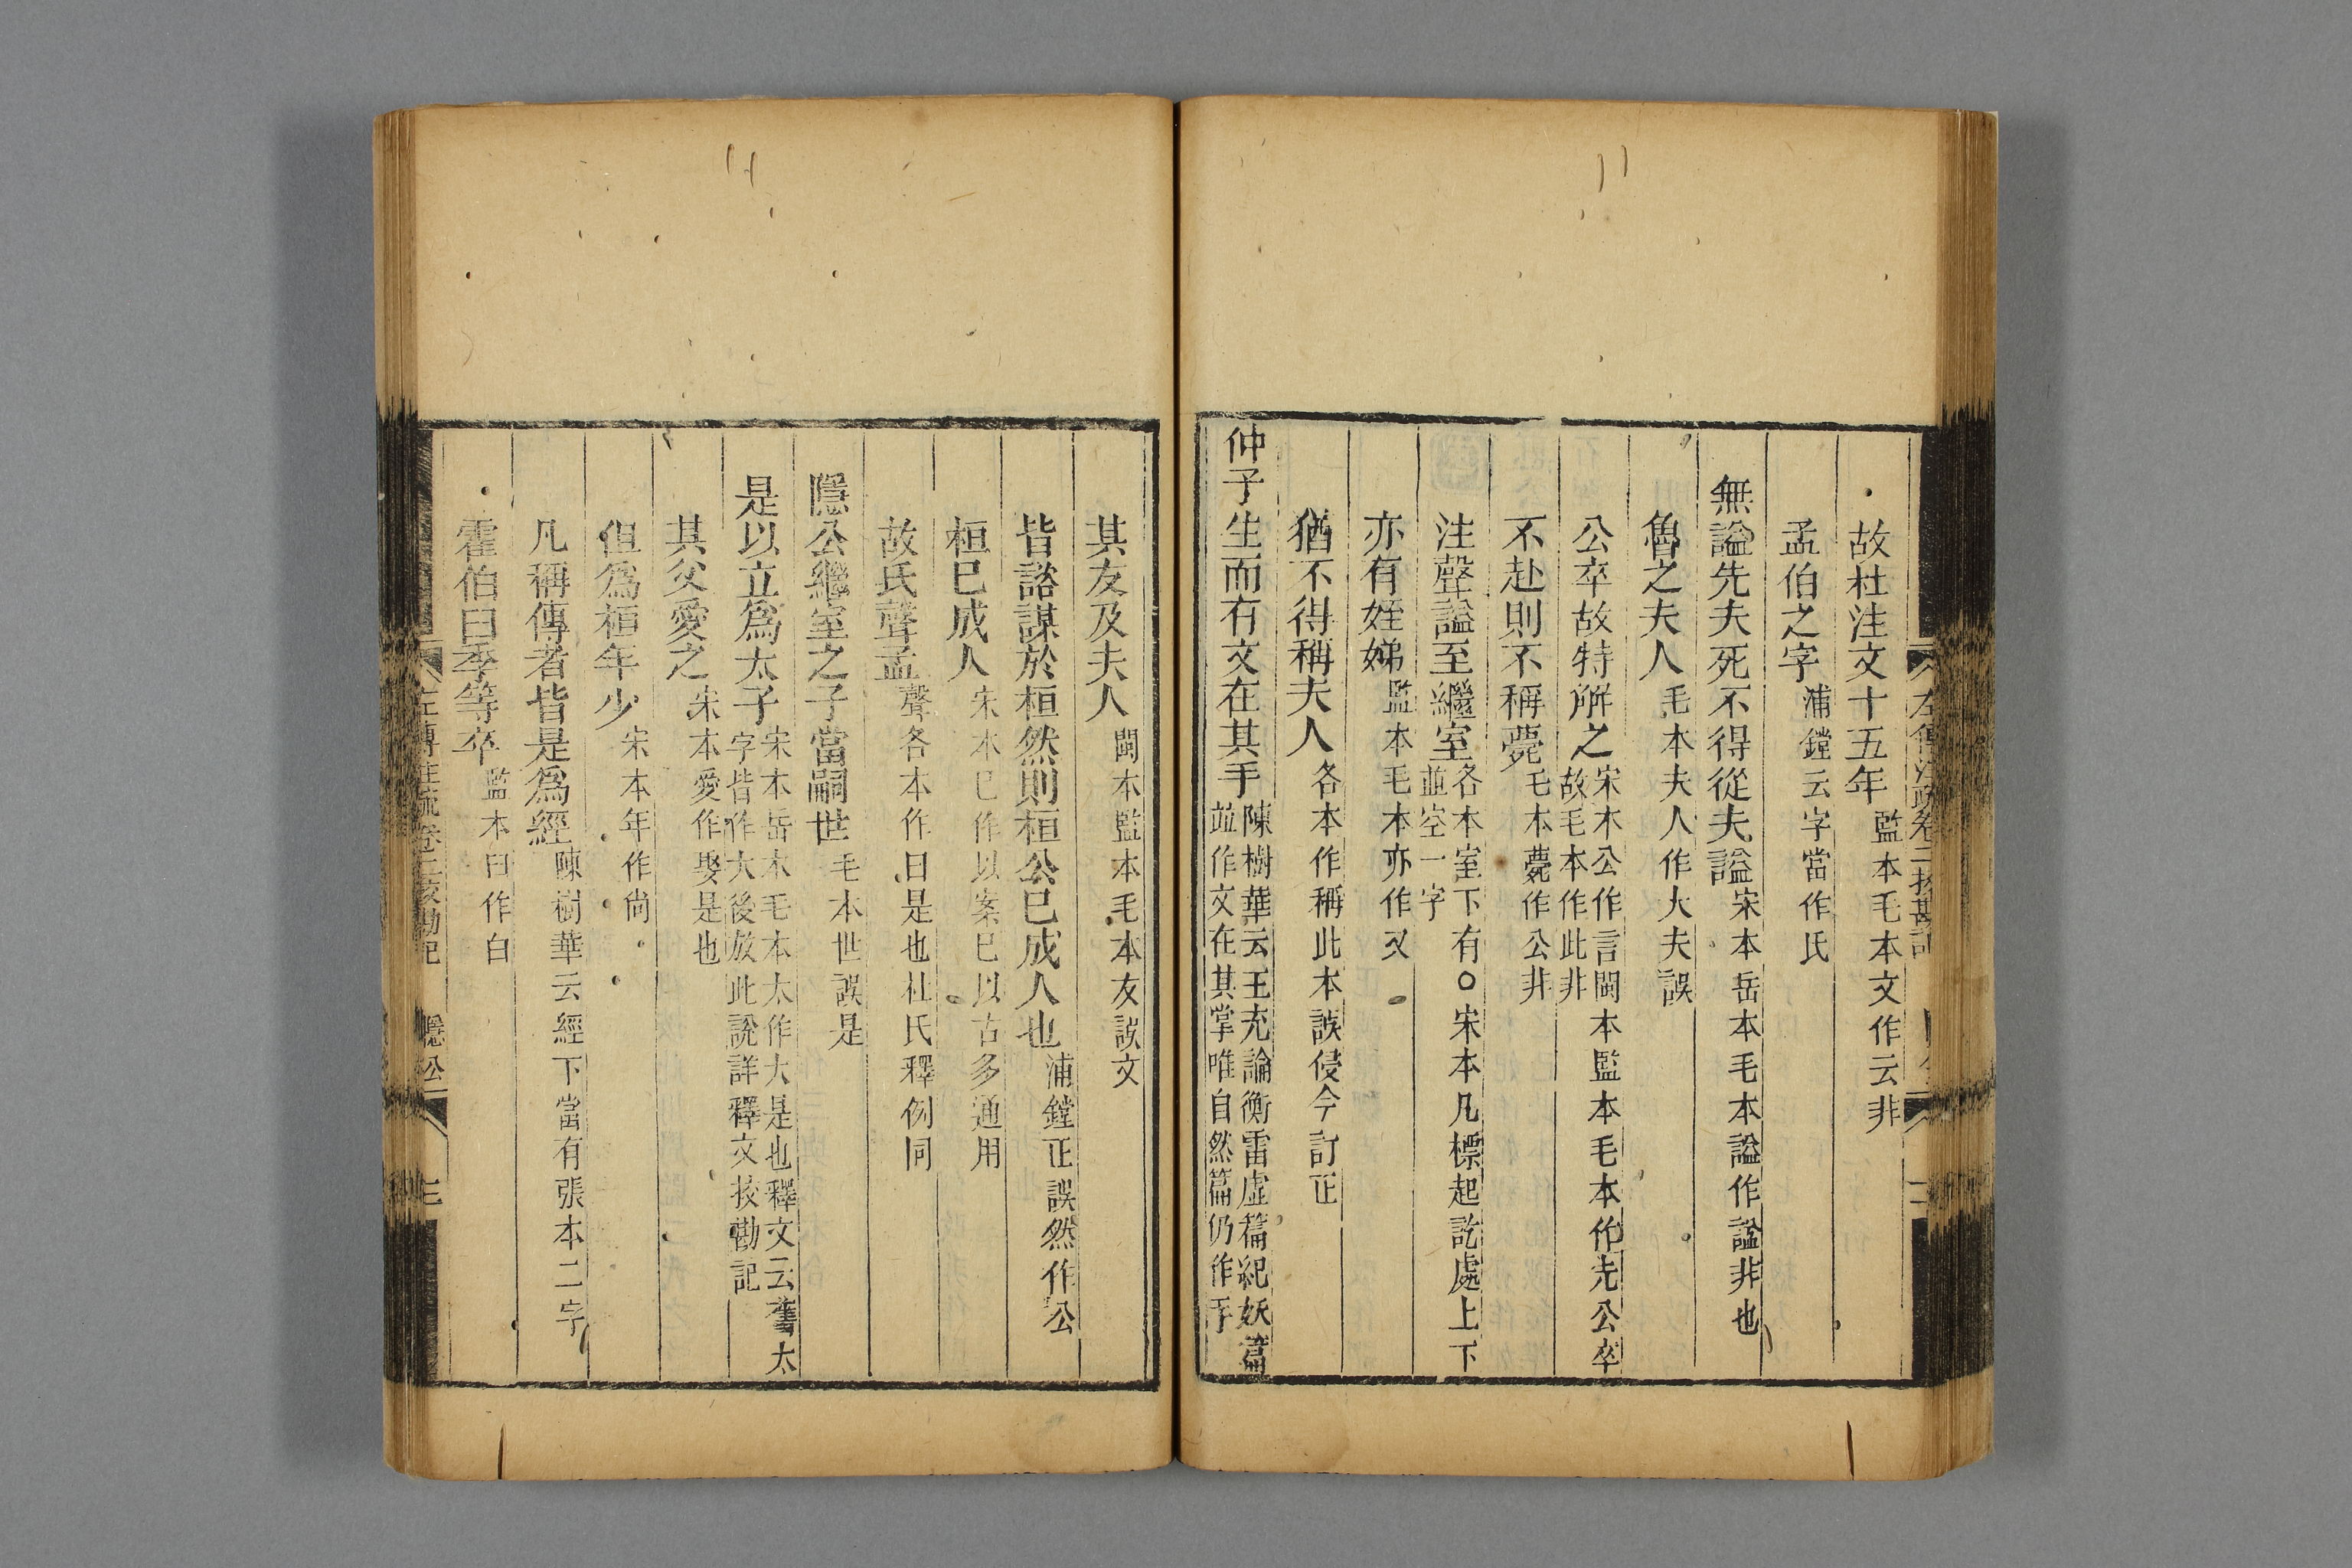 故杜注文十五年監本毛本文作云非
孟伯之字浦鏜云字當作氏
無謚先夫死不得從夫謚宋本岳本毛本謚作諡非也
魯之夫人毛本夫人作大夫誤
公卒故特解之宋本公作言閩本監本毛本作先公卒故毛本作此非
不赴則不稱薨毛本薨作公非
注聲謚至繼室各本室下有○宋本凡標起訖處上下並空一字
亦有姪娣監本毛本亦作又
猶不得稱夫人各本作稱此本誤侵今訂正
仲子生而有文在其手陳樹華云王充論衡雷虛篇紀妖篇並作文在其掌唯自然篇仍作手
其友及夫人閩本監本毛本友誤文
皆諮謀於桓然則桓公已成人也浦鏜正誤然作公
桓已成人宋本已作以案已以古多通用
故氏聲孟聲各本作曰是也杜氏釋例同
隱公繼室之子當嗣世毛本世誤是
是以立爲太子宋本岳本毛本太作大是也釋文云舊太字皆作大後放此說詳釋文挍勘記
其父愛之宋本愛作娶是也
但爲桓年少宋本年作尙
凡稱傳者皆是爲經陳樹華云經下當有張本二字
霍伯曰季等卒監本曰作白
左傳注疏卷二挍勘記 隱公 三